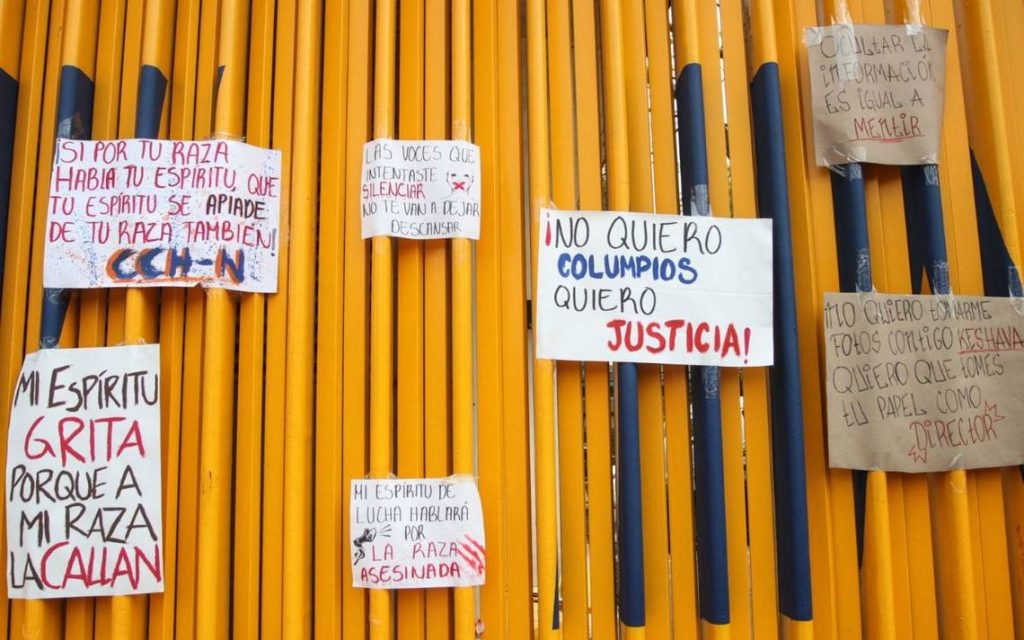 ¡SI POR TU RAZA
HABLA TU ESPÍRITU, QUE
TU ESPÍRITU SE APIADE
DE TU RAZA TAMBIÉN!
CCH-N
MI ESPÍRITU
GRITA
PORQUE A
MI RAZA
LA CALLAN
LAS VOCES QUE
INTENTASTE
SILENCIAR
NO TE VAN A DEJAR
DESCANSAR
MI ESPÍRITU DE
LUCHA HABLARÁ
POR
LA RAZA
ASESINADA
¡NO QUIERO
COLUMPIOS
QUIERO
JUSTICIA!
OCULTAR LA
INFORMACIÓN
ES IGUAL A
MENTIR
¡NO QUIERO TOMARME
FOTOS CONTIGO KESHAVA
QUIERO QUE TOMES
TU PAPEL COMO
DIRECTOR